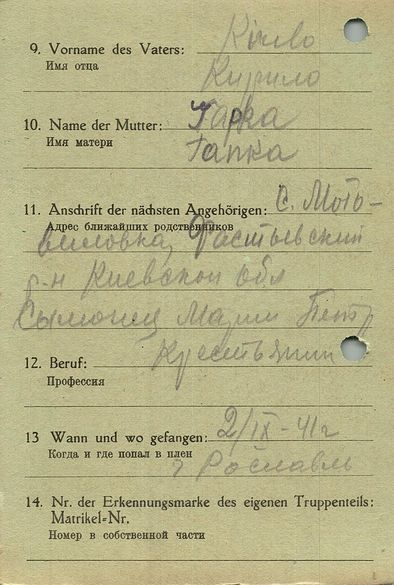 9. Vorname des Vaters: Kirilo
Имя отца Кирило
10. Name der Mutter: Гарка
Имя матери Гапка
11. Anschrift der nächsten Angehörigen: С. Мото-
Адрес ближайших родственников
виловка, Фастовский
р-н Киевской обл
Марии Петр
12. Beruf: Крестьянин
Профессия
13 Wann und wo gefangen: 2/IX-41г
Когда и где попал в плен г Рославль
14. Nr. der Erkennungsmarke des eigenen Truppenteils:
Matrikel=Nr.
Номер в собственной части